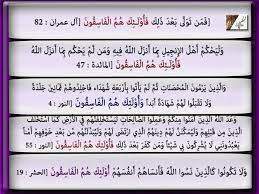 [فَمَن تَوَلَّىٰ بَعْدَ ذَٰلِكَ فَأُولَٰئِكَ هُمُ الْفَاسِقُونَ [آل عمران : 82
وَلْيَحْكُمْ أَهْلُ الْإِنجِيلِ بِمَا أَنزَلَ اللَّهُ فِيهِ وَمَن لَّمْ يَحْكُم بِمَا أَنزَلَ اللَّهُ
فَأُولَٰئِكَ هُمُ الْفَاسِقُونَ [المائدة : 47]
وَالَّذِينَ يَرْمُونَ الْمُحْصَنَاتِ ثُمَّ لَمْ يَأْتُوا بِأَرْبَعَةِ شُهَدَاءَ فَاجْلِدُوهُمْ ثَمَانِينَ جَلْدَةً
وَلَا تَقْبَلُوا لَهُمْ شَهَادَةً أَبَدًا وَأُولَٰئِكَ هُمُ الْفَاسِقُونَ [النور : 4]
وَعَدَ اللَّهُ الَّذِينَ آمَنُوا مِنكُمْ وَعَمِلُوا الصَّالِحَاتِ لَيَسْتَخْلِفَنَّهُمْ فِي الْأَرْضِ كَمَا اسْتَخْلَفَ
الَّذِينَ مِن قَبْلِهِمْ وَلَيُمَكِّنَنَّ لَهُمْ دِينَهُمُ
أُولَٰئِكَ هُمُ الْفَاسِقُونَ [النور : 55]
وَلَا تَكُونُوا كَالَّذِينَ نَسُوا اللَّهَ فَأَنسَاهُمْ أَنفُسَهُمْ أُولَٰئِكَ هُمُ الْفَاسِقُونَ [الحشر : 19]